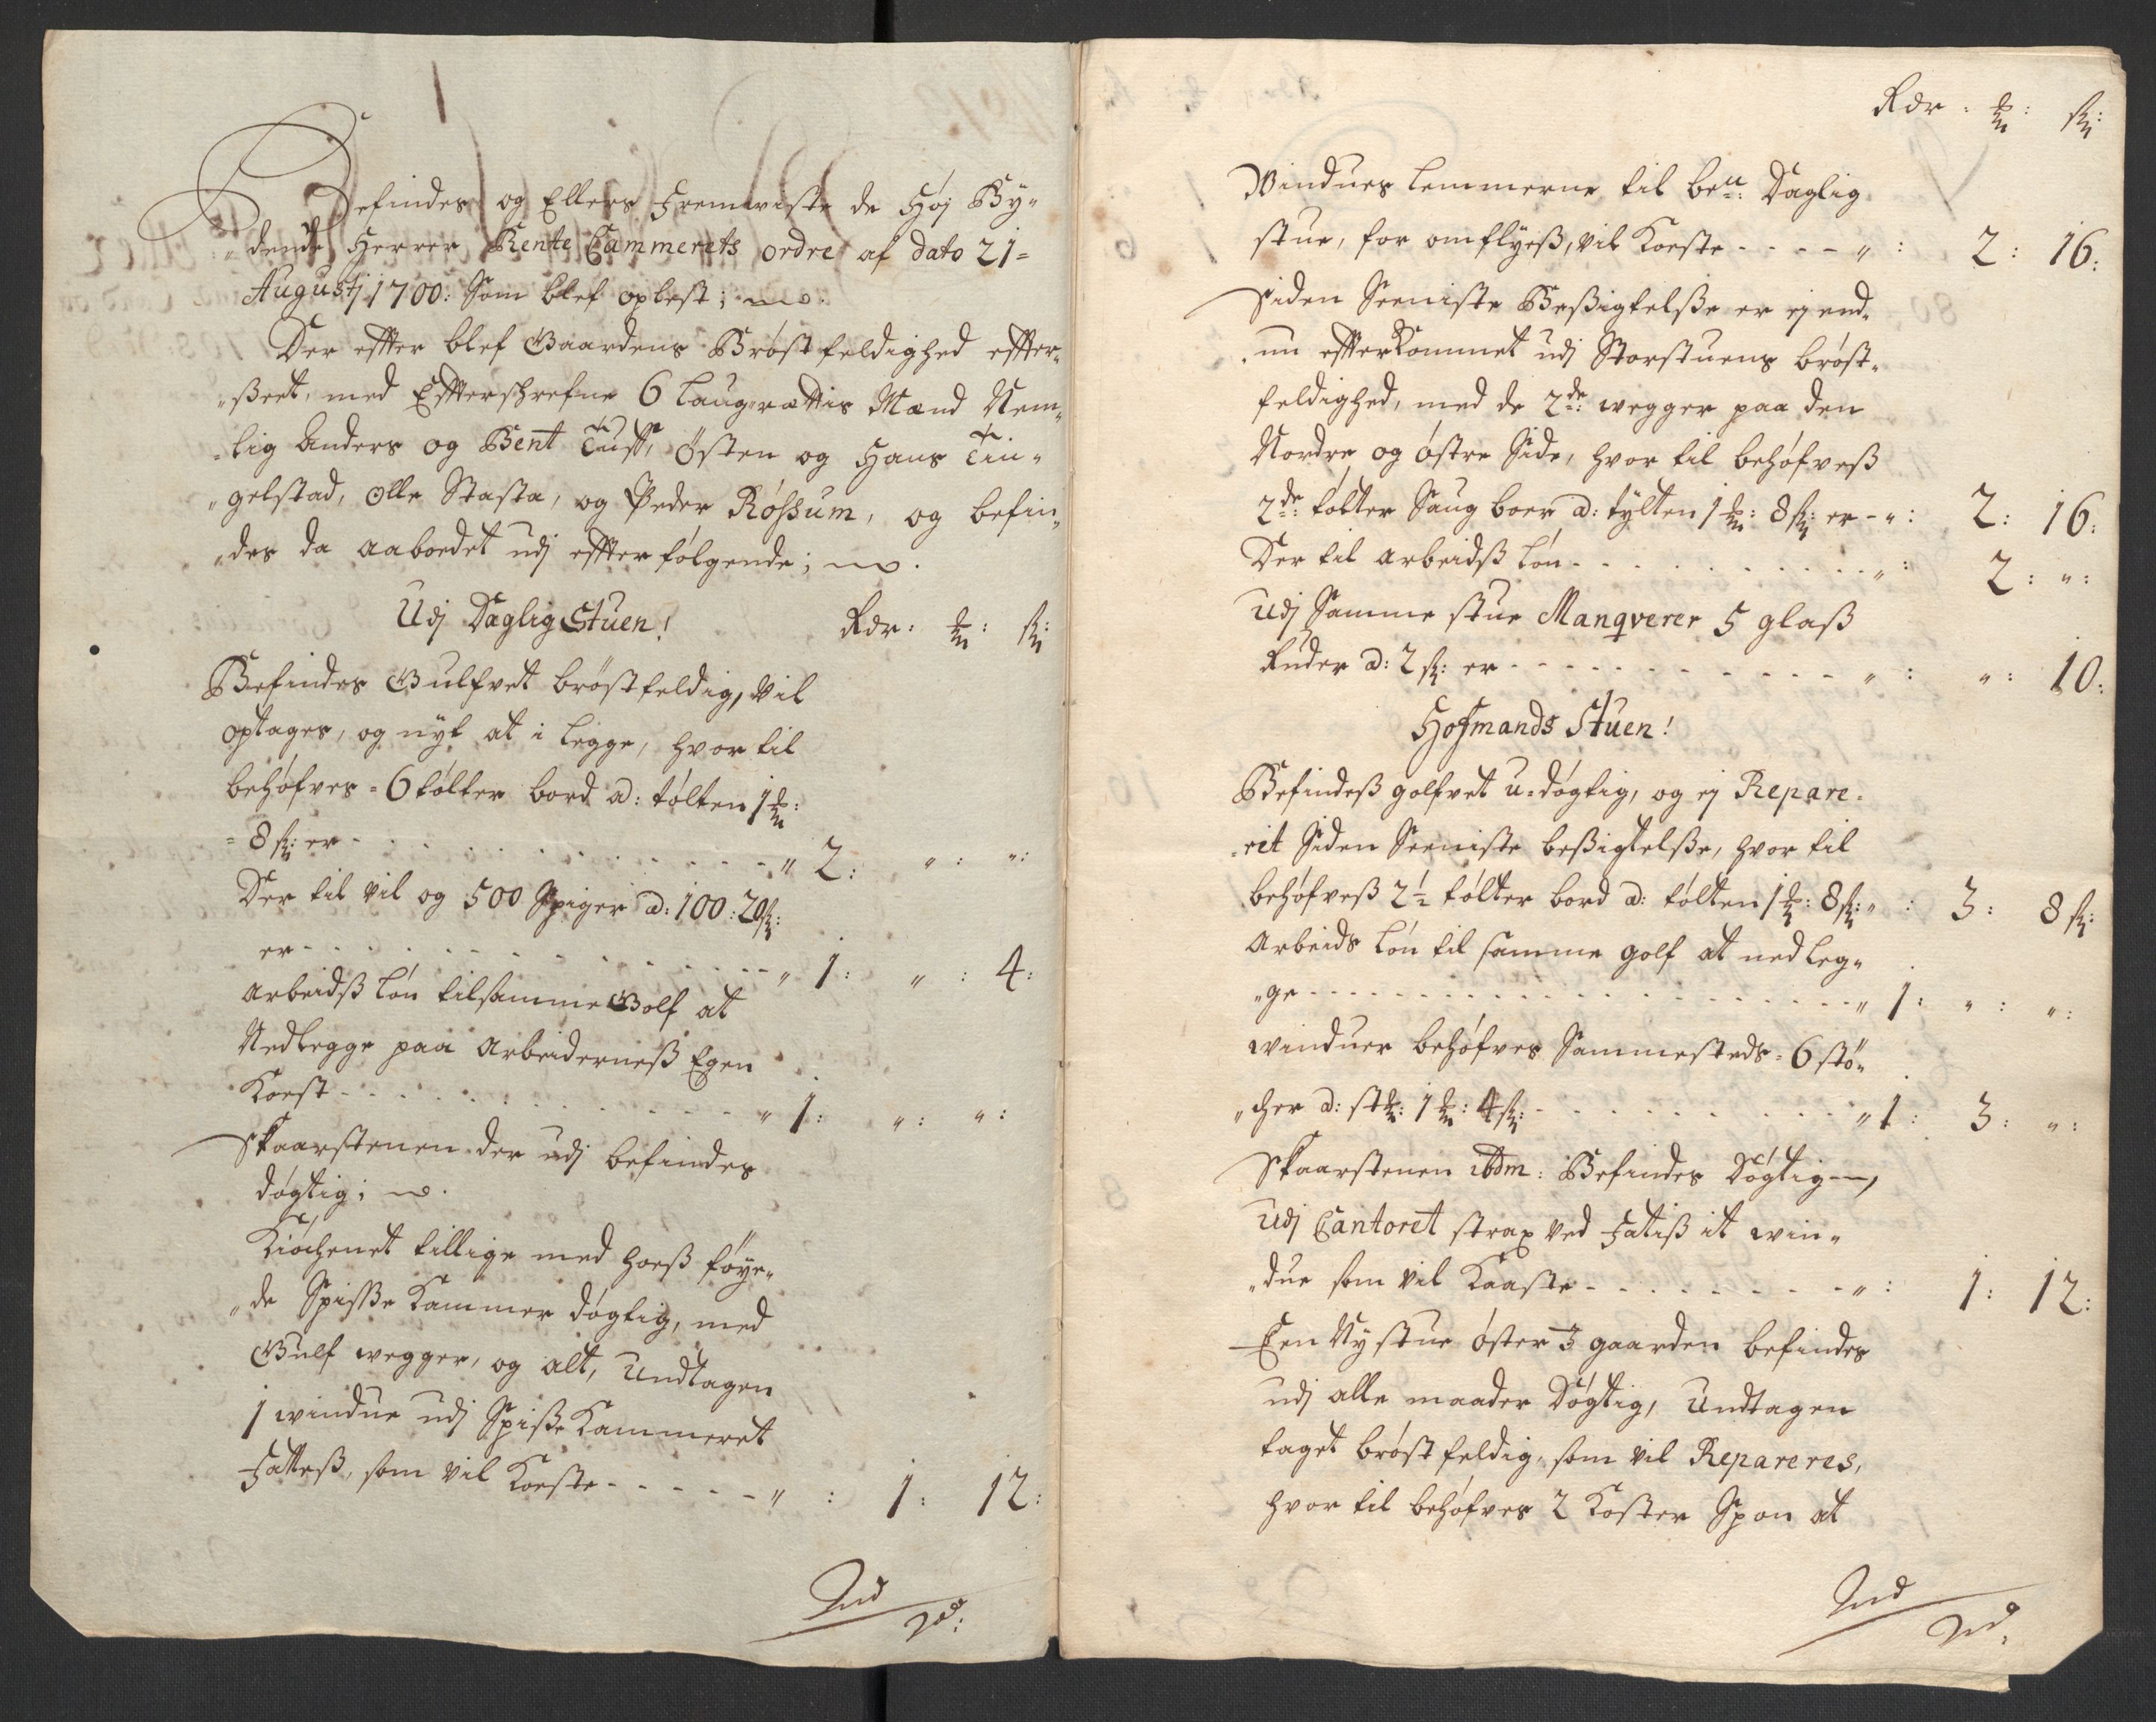 Befindes og Ellers Fremviste de Høj Bÿ„
„dende Herrer Rente Cammerets ordre af dato 21=
Augustj 1700: Som blef oplest;
Der effter blef Gaardens Brøstfeldighed effter„
„seet, med Effterschrefne 6 Laugrættis Mænd Nem„
„lig Anders og Bent Tuff, Østen og Hans Tin„
„gelstad, Olle Stasta, og Peder Røssum, og befin„
„des da aaboedet udj effterfølgende;
Udj Daglig Stuen! Rdr: ℔: ß:
Befindes Gulfvet brøstfeldig, vil
optages, og nÿt at i legge, hvor til
behøfves = 6 tølter bord a: tølten 1 ℔:
= 8 ß: er - - - „ 2: „: „:
Der til vil og 500 Spiger a: 100: 20 ß:
er - - - „ 1: „: 4:
Arbeidsß løn til samme Golf at
Nedlegge paa Arbeiderneß Egen
Koest - - - „ 1: „: „:
Skaarstenen der udj befindes
døgtig;
Kiøchenet tillige med hoeß føÿe„
„de Spisße Kammer døgtig, med
Gulf wegger, og alt, Undtagen
1 windue udj Spisße Kammeret
Fatteß, som vil Koeste - - - „: 1: 12:
Ind
Rdr: ℔: ß:
Windues Lemmerne til be.te: Daglig
stue, for omflÿeß, vil Koeste - - - „: 2: 16:
Siden Seeniste Beßigtelße er ej end„
„nu effterkommet udj Storstuens brøst„
feldighed, med de 2de: wegger paa den
Nordre og østre Side, hvor til behøfveß
2de: tølter Saug boer a: tÿlten 1 ℔: 8 ß: er - „: 2: 16:
Der til arbeidß løn - - - „: 2: „:
Udj Samme stue Manqverer 5 glaß
Ruder a: 2 ß: er - - - „: „: 10:
Hofmands Stuen!
Befindeß golfvet u=døgtig, og ej Repare„
„rit Siden Seeniste beßigtelße, hvor til
behøfveß 2½ tølter bord a: tølten 1 ℔: 8 ß: „: 3: 8 ß:
Arbeids løn til samme golf at ned leg„
„ge - - - „ 1: „: „:
winduer behøfves Sammesteds = 6 stø„
„cher a: st: 1 ℔: 4 ß: - - - „ 1: 3: „:
Skaarstenen ibdm: Befindes Døgtig,
Udj Cantoret strax ved Fatiß it win„
„due som vil Kaaste - - - „: 1: 12:
Een Nÿ stue øster i gaarden befindes
udj alle maader Døgtig, Undtagen
taget brøstfeldig, som vil Repareres,
hvor til behøfves 2 Koster Spon at
Ind